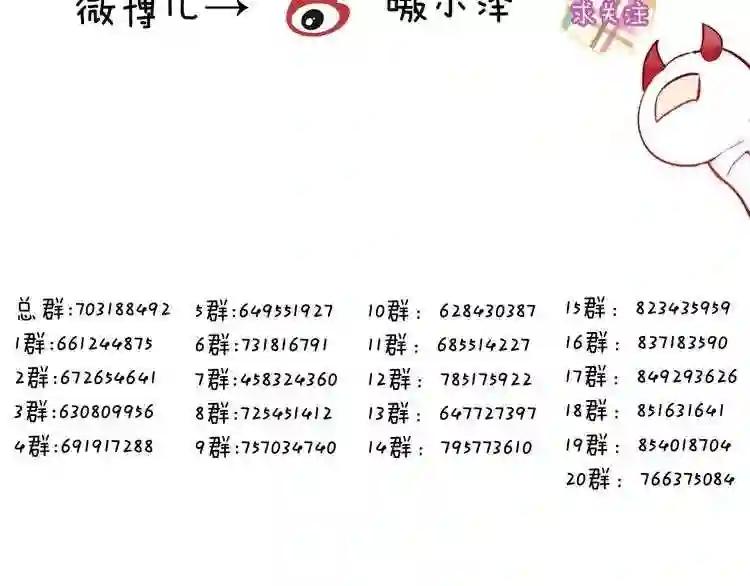 微博儿→ 嗷小泽
求关注
总群:703188492
1群:661244875
2群:672654641
3群:630809956
4群:691917288
5群:649551927
6群:731816791
7群:458324360
8群:725451412
9群:757034740
10群： 628430387
11群： 685514227
12群： 785175922
13群： 647727397
14群： 795773610
15群： 823435959
16群： 837183590
17群： 849293626
18群： 851631641
19群： 854018704
20群： 766375084